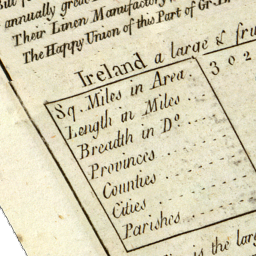 annually great
Their Linen Manufactory
The Happy Union of this Part of Gr.
Ireland a large & fru
Sq. Miles in Area. 302
Length in Miles
Breadth in D°
Provinces
Counties
Cities
Parishes
is the larg